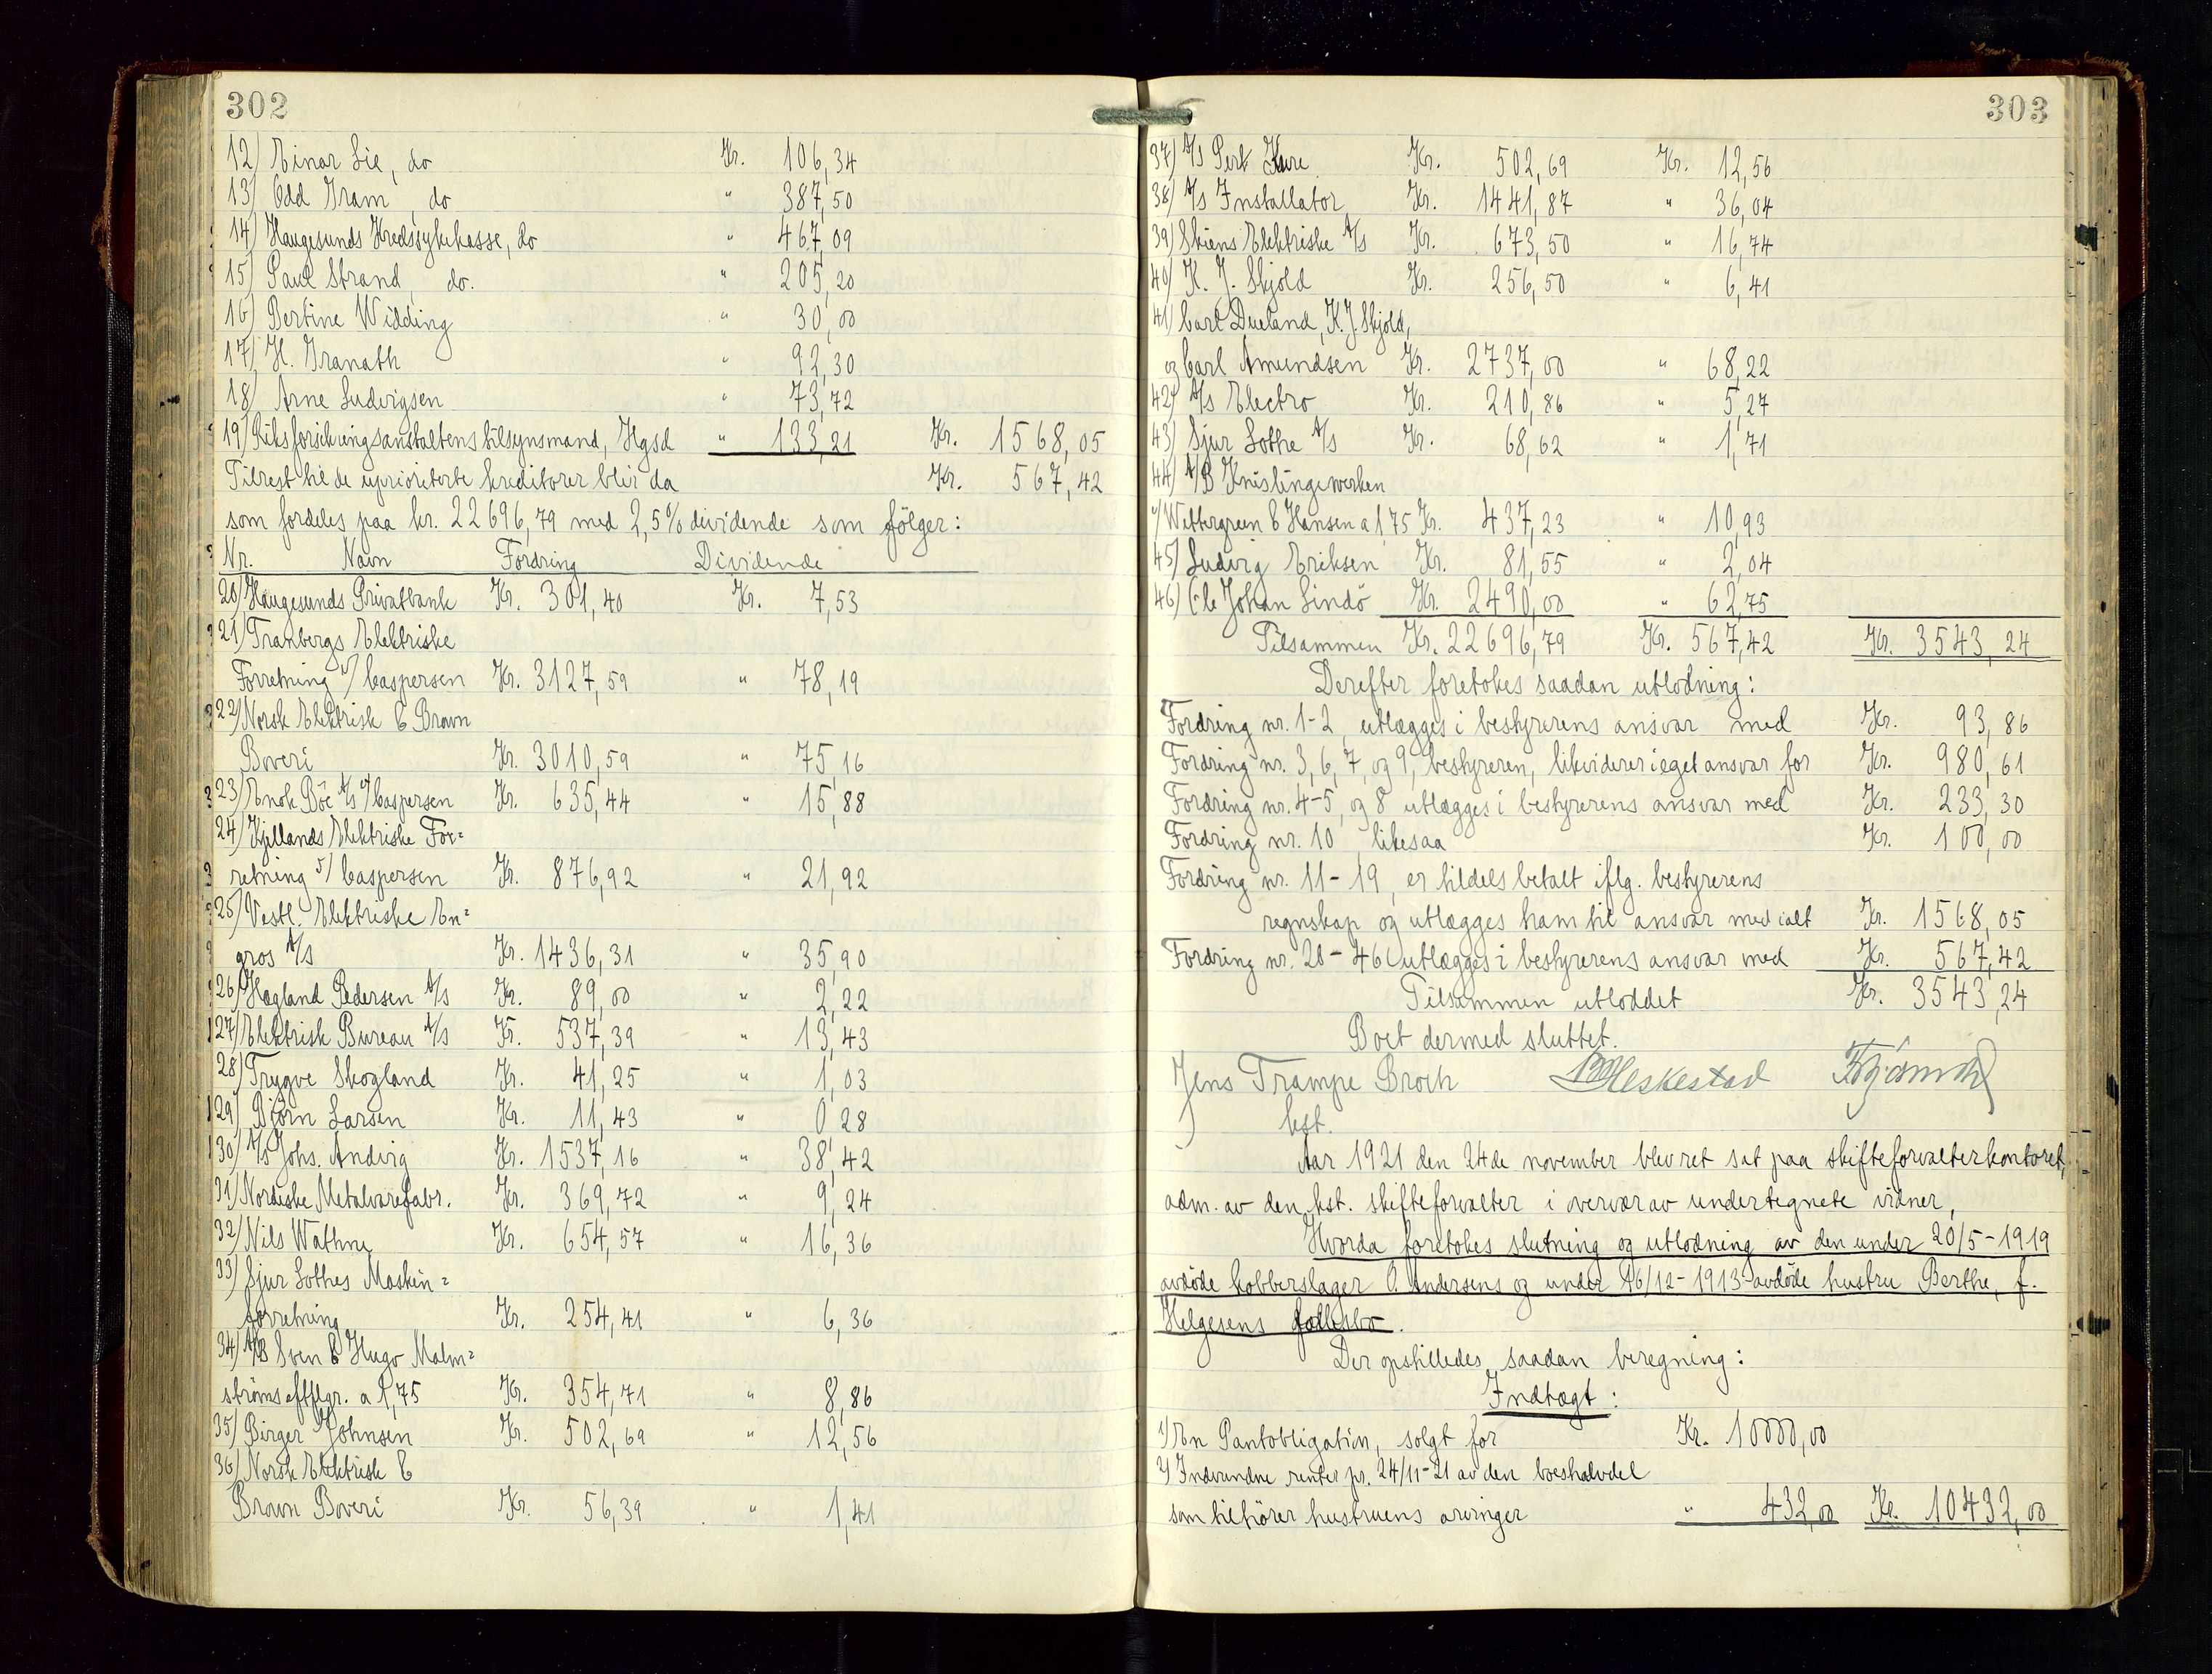 302
12) Einar Lie, do Kr. 106,34
13) Odd Gram, do " 387,50
14) Haugesunds Kredssykekasse, do " 467,09
15) Paul Strand, do. " 205,20
16) Bertine Widding " 30,00
17) H. Granath " 92,30
18) Arne Ludvigsen " 73,72
19) Riksforsikringsanstaltens tilsynsmand, Hgsd " 133,21 Kr. 1568,05
Tilrest til de uprioriterte kreditorer blir da Kr. 567,42
som fordeles paa kr. 22696,79 med 2,5% dividende som følger:
Nr. Navn Fordring Dividende
20) Haugesunds Privatbank Kr. 301,40 Kr. 7,53
21) Tranbergs Elektriske
Forretning v/ Caspersen Kr. 3127,59 " 78,19
22) Norsk Elektrisk & Brown
Boveri Kr. 3010,59 " 75,16
23) Enok Böe A/s v/ Caspersen Kr. 635,44 " 15,88
24) Kjellands Elektriske For=
retning v/ Caspersen Kr. 876,92 " 21,92
25) Vestl. Elektriske En=
gros A/s Kr. 1436,31 " 35,90
26) Hagland Pedersen A/s Kr. 89,00 " 2,22
27) Elektrisk Bureau A/s Kr. 537,39 " 13,43
28) Trygve Skogland Kr. 41,25 " 1,03
29) Björn Larsen Kr. 11,43 " 0 28
30) A/s Johs. Andvig Kr. 1537,16 " 38,42
31) Nordiske Metalvarefabr. Kr. 369,72 " 9,24
32) Nils Wathne Kr. 654,57 " 16,36
33) Sjur Lothes Maskin=
forretning Kr. 254,41 " 6,36
34) A/B Sven & Hugo Malm=
ströms efftflgr. a 1,75 Kr. 354,71 " 8,86
35) Birger Johnsen Kr. 502,69 " 12,56
36) Norsk Elektrisk &
Brown Boveri Kr. 56,39 " 1,41
303
37) A/s Pert Kr. 502,69 Kr. 12,56
38) A/s Installator Kr. 1441,87 " 36,04
39) Skiens Elektriske A/s Kr. 673,50 " 16,74
40) K. J. Skjold Kr. 256,50 " 6,41
41) Carl Dueland, K. J. Skjold,
og Carl Amundsen Kr. 2737,00 " 68,22
42) A/s Electro Kr. 210,86 " 5,27
43) Sjur Lothe A/s Kr. 68,62 " 1,71
44) A/B Knislingeverken
v/ Wettergreen & Hansen a 1,75 Kr. 437,23 " 10,93
45) Ludvig Eriksen Kr. 81,55 " 2,04
46) Ole Johan Lindö Kr. 2490,00 " 62,75
Tilsammen Kr. 22696,79 Kr. 567,42 Kr. 3543,24
Derefter foretokes saadan utlodning:
Fordring nr. 1-2, utlægges i bestyrerens ansvar med Kr. 93,86
Fordring nr. 3, 6, 7, og 9, bestyreren, likviderer i eget ansvar for Kr. 980,61
Fordring nr. 4-5, og 8 utlægges i bestyrerens ansvar med Kr. 233,30
Fordring nr. 10 likesaa Kr. 100,00
Fordring nr. 11-19, er tildels betalt iflg. bestyrerens
regnskap og utlægges ham til ansvar med ialt Kr. 1568,05
Fordring nr. 20-46 utlægges i bestyrerens ansvar med Kr. 567,42
Tilsammen utloddet Kr. 3543,24
Boet dermed sluttet.
Jens Trampe Broch Heskestad
kst.
Aar 1921 den 24de november blev ret sat paa skifteforvalterkontoret,
adm. av den kst. skifteforvalter i overvær av undertegnete vidner,
Hvorda foretokes slutning og utlodning av den under 20/5-1919
avdöde kobberslager O. Andersens og under 16/12-1913 avdöde hustru Berthe, f.
Helgesens fællesbo.
Der opstilledes saadan beregning:
Indtægt:
1) En Pantobligation, solgt for Kr. 10000,00
2) Indvundne renter pr. 24/11-21 av den boeshalvdel
som tilhörer hustruens arvinger " 432,00 Kr. 10432,00